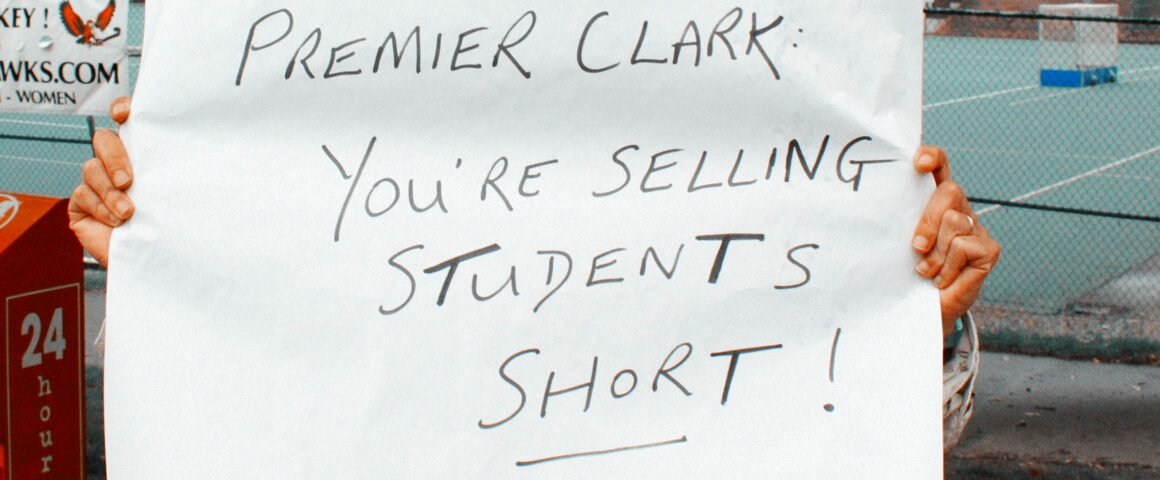 KEY !
WKS.COM
- WOMEN
PREMIER CLARK:
YOU'RE SELLING
STUDENTS
SHORT !
24
hour